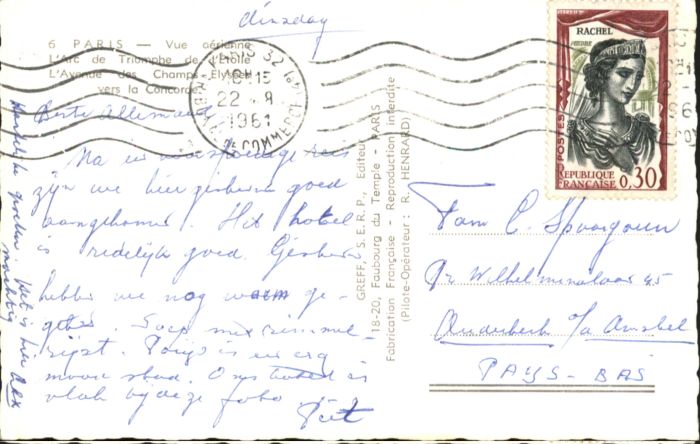 dinsdag
6 PARIS — Vue aérienne
L'Arc de Triomphe de l'Étoile
L'Avenue des Champs-Élysées
vers la Concorde
PARIS 32
18H15
22 - 8
1961
RACHEL
PHÈDRE
POSTES
RÉPUBLIQUE
FRANÇAISE
0,30
Beste Allemaal
Na een voorspoedige reis
zijn we hier gisteren goed
aangekomen. Het hotel
is redelijk goed. Gisteren
hebben we nog warm ge-
geten. Soep met
rijst. Parijs is een erg
mooie stad. Ons hotel is
vlak bij deze foto
Piet
Hartelijke groeten. Het is hier
machtig
GREFF, S.E.R.P., Editeur
18-20, Faubourg du Temple - PARIS
Fabrication Française - Reproduction interdite
(Pilote-Opérateur : R. HENRARD)
Fam C. Spoorgoen
Pr Wilhelminalaan 45
Ouderkerk a/d Amstel
PAYS-BAS